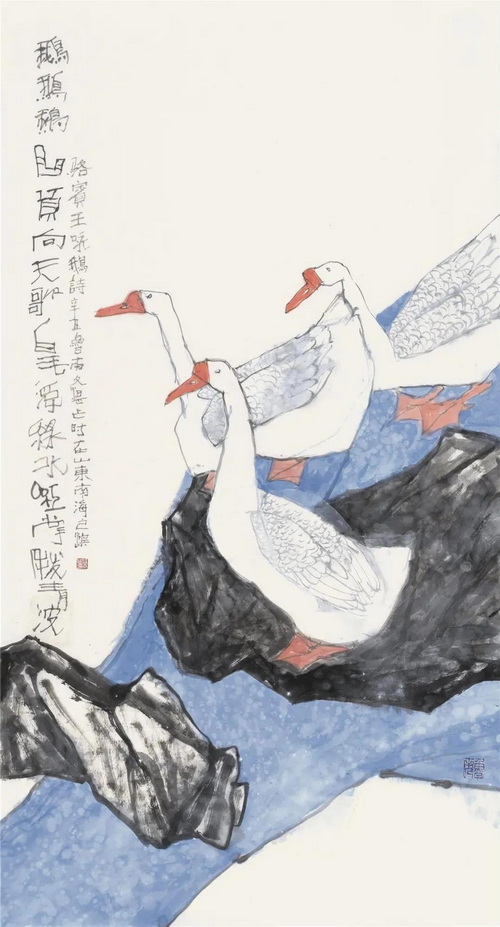 鵝鵝鵝曲項向天歌白毛浮綠水紅掌撥清波
駱賓王咏鵝詩辛丑魯南時在山東南海之濱